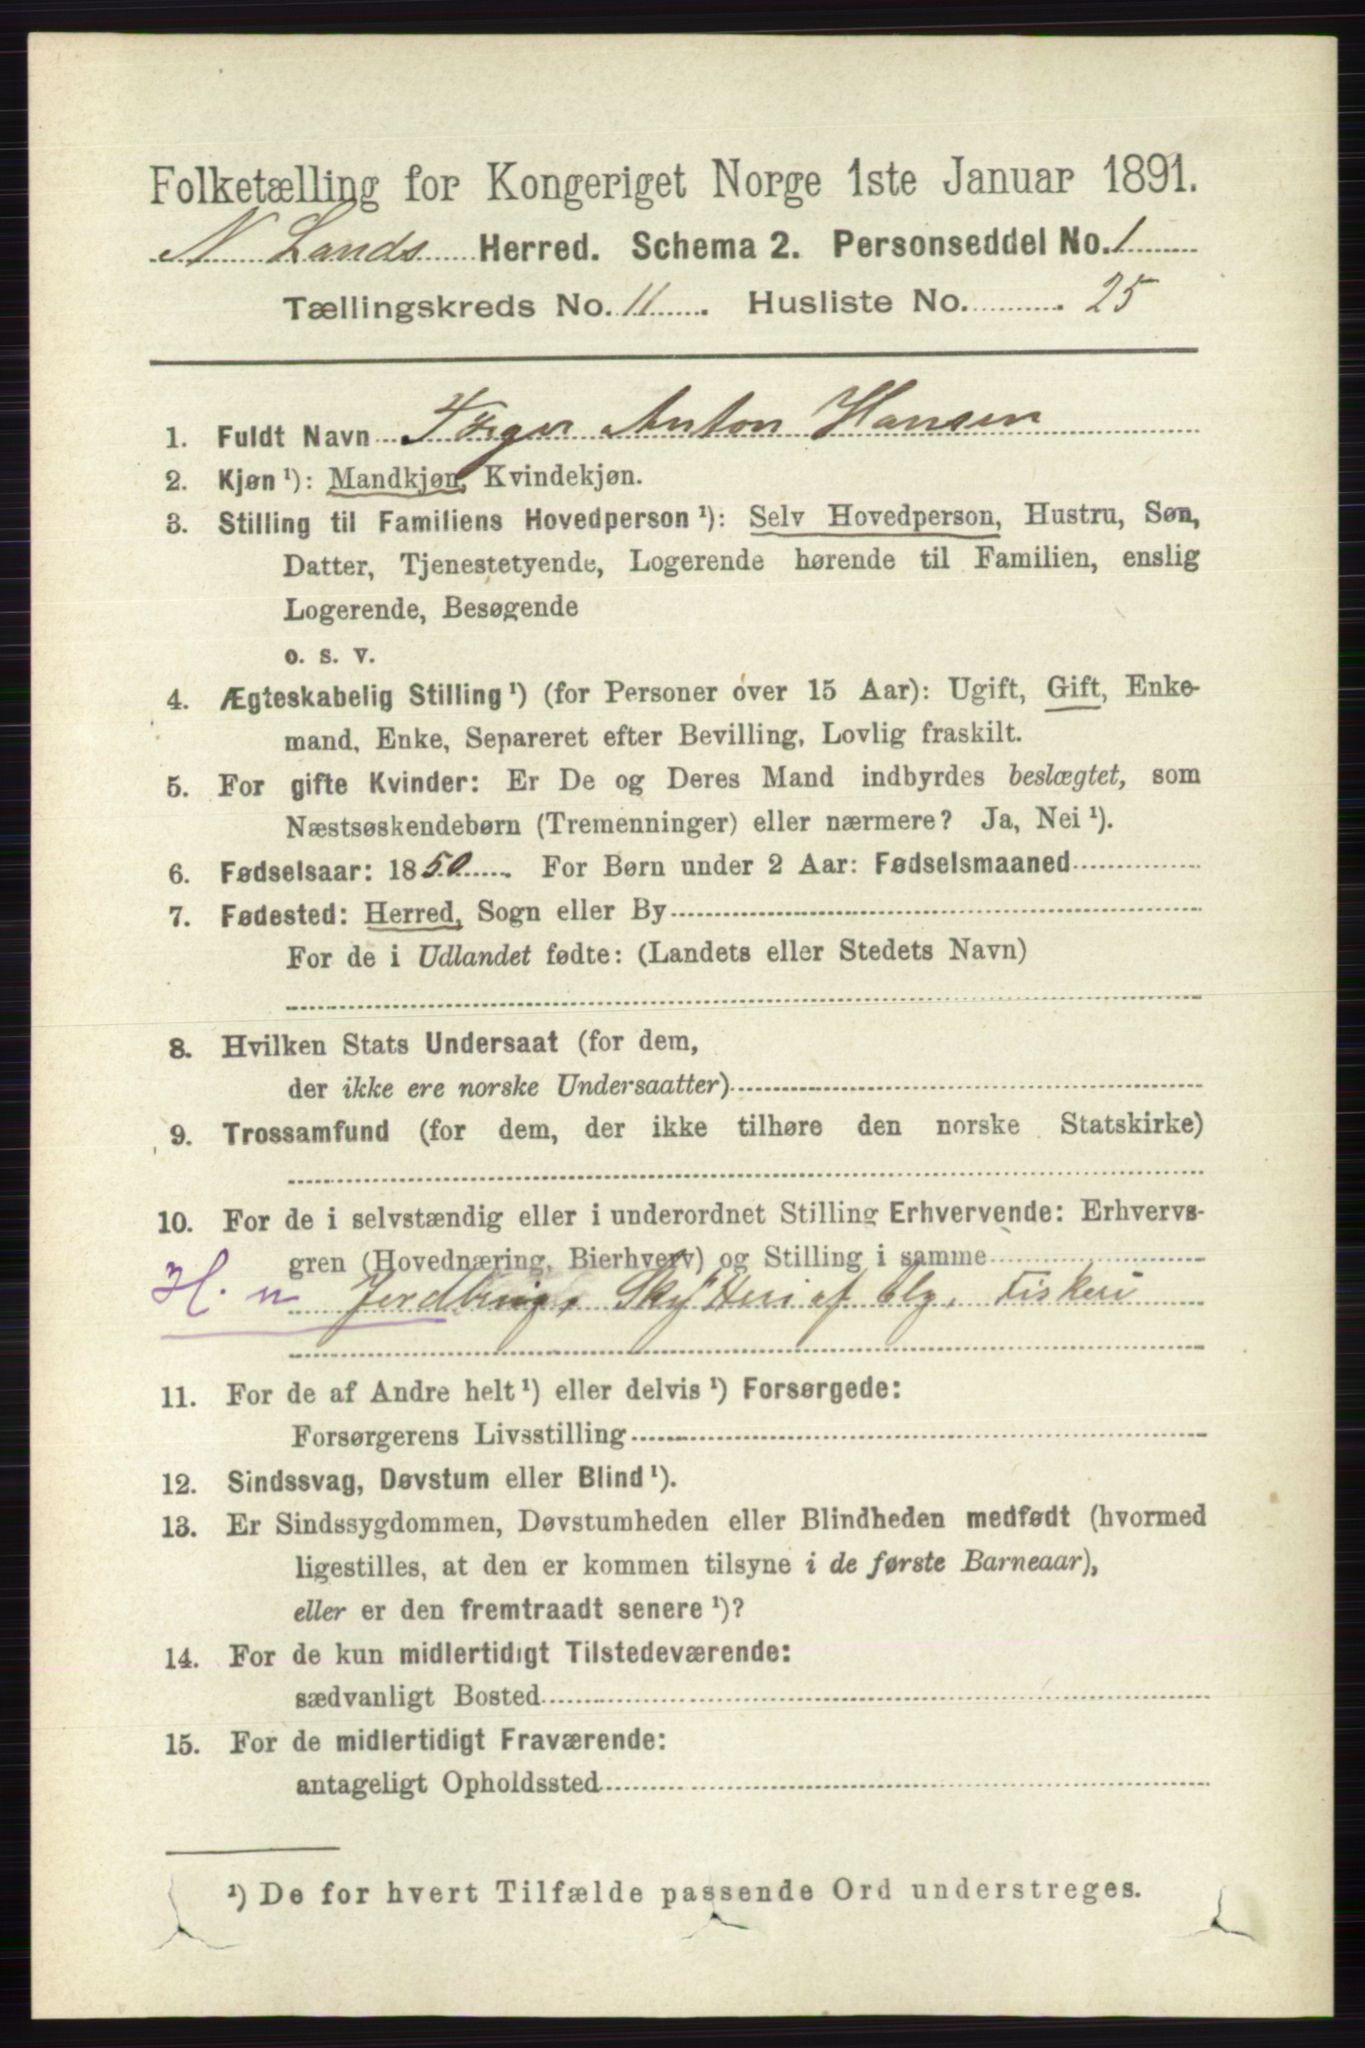 Folketælling for Kongeriget Norge 1ste Januar 1891.
N Lands Herred. Schema 2. Personseddel No. 1
Tællingskreds No. 11. Husliste No. 25
1. Fuldt Navn Torger Anton Hansen
2. Kjøn ¹): Mandkjøn, Kvindekjøn.
3. Stilling til Familiens Hovedperson ¹): Selv Hovedperson, Hustru, Søn,
Datter, Tjenestetyende, Logerende hørende til Familien, enslig
Logerende, Besøgende
o. s. v.
4. Ægteskabelig Stilling ¹) (for Personer over 15 Aar): Ugift, Gift, Enke-
mand, Enke, Separeret efter Bevilling, Lovlig fraskilt.
5. For gifte Kvinder: Er De og Deres Mand indbyrdes beslægtet, som
Næstsøskendebørn (Tremenninger) eller nærmere? Ja, Nei ¹).
6. Fødselsaar: 1850. For Børn under 2 Aar: Fødselsmaaned
7. Fødested: Herred, Sogn eller By
For de i Udlandet fødte: (Landets eller Stedets Navn)
8. Hvilken Stats Undersaat (for dem,
der ikke ere norske Undersaatter)
9. Trossamfund (for dem, der ikke tilhøre den norske Statskirke)
10. For de i selvstændig eller i underordnet Stilling Erhvervende: Erhvervs-
gren (Hovednæring, Bierhverv) og Stilling i samme
H. n Jordbrug, Skytteri af Elg, Fiskeri
11. For de af Andre helt ¹) eller delvis ¹) Forsørgede:
Forsørgerens Livsstilling
12. Sindssvag, Døvstum eller Blind ¹).
13. Er Sindssygdommen, Døvstumheden eller Blindheden medfødt (hvormed
ligestilles, at den er kommen tilsyne i de første Barneaar),
eller er den fremtraadt senere ¹)?
14. For de kun midlertidigt Tilstedeværende:
sædvanligt Bosted
15. For de midlertidigt Fraværende:
antageligt Opholdssted
¹) De for hvert Tilfælde passende Ord understreges.